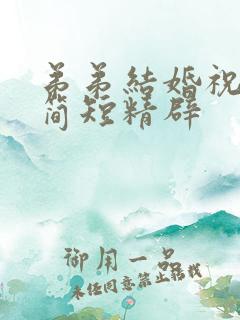 弟弟結婚祝
简短精辟
御用一品
未经同意禁止转载